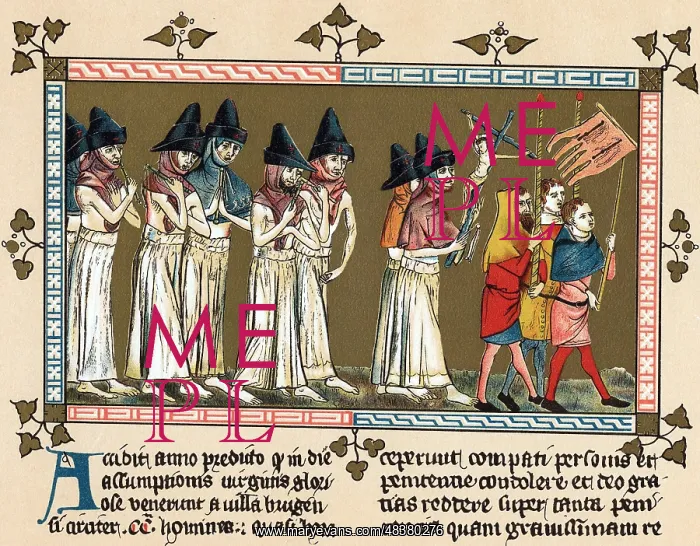 ME
PL
ME
PL
Accidit anno predicto q in die
assumptionis uirginis glori
ose venerunt a villa brugen
si circiter .CC. homines:
ceperunt compati personis et
penitentie condolere et deo gra
tias reddere super tanta peni
quam grauissimam re
www.maryevans.com/48380276